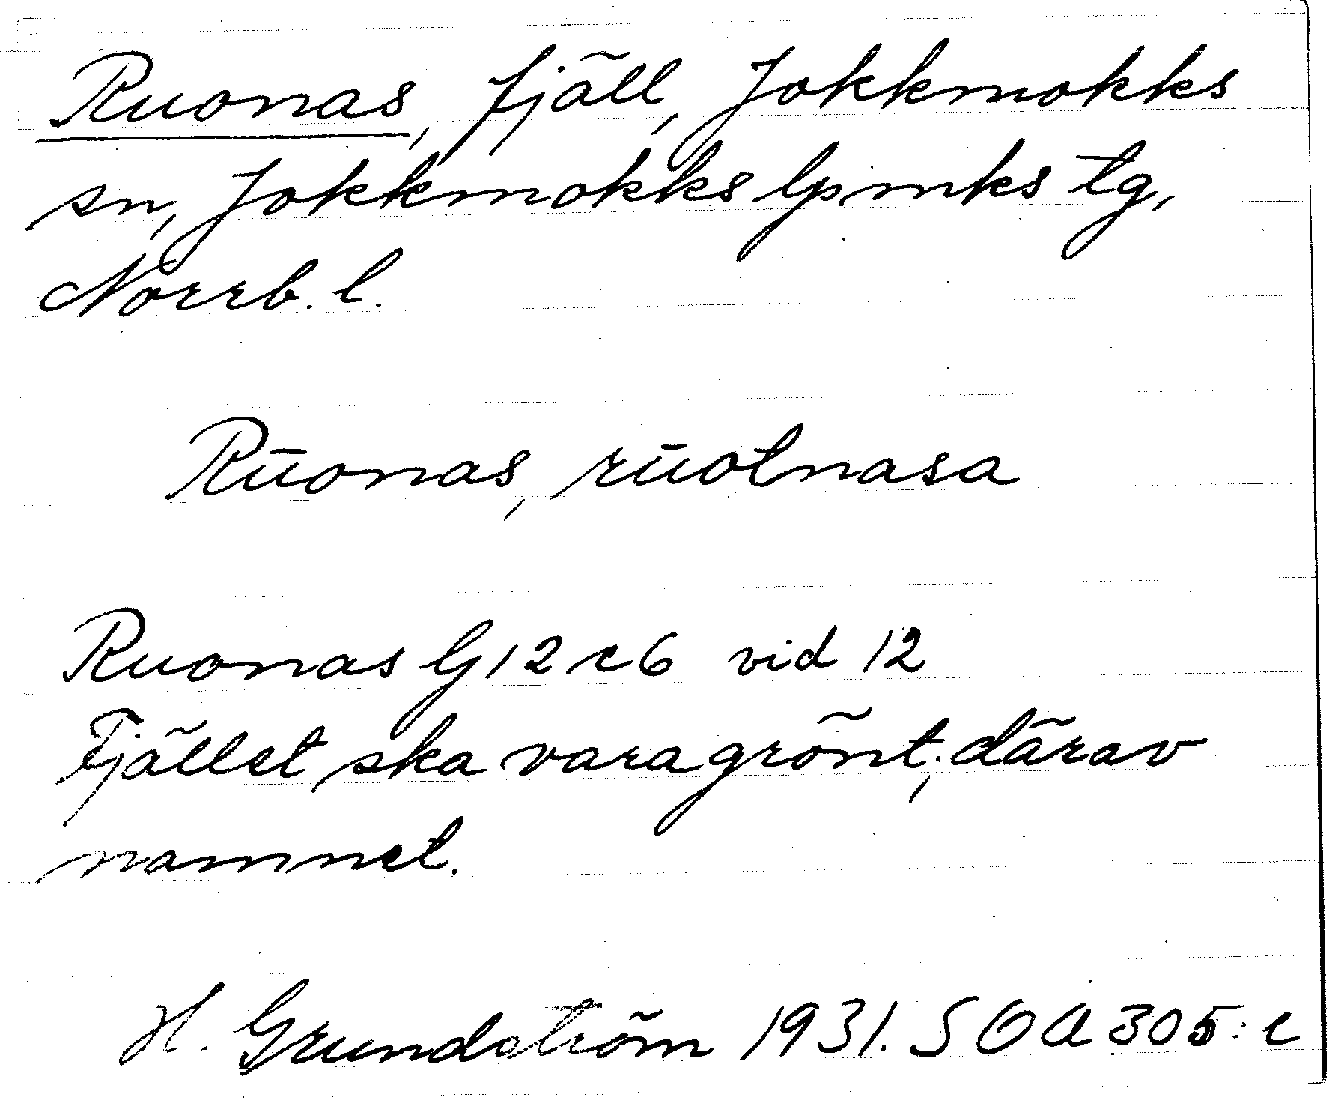 Ruonas, fjäll, Jokkmokks
sn, Jokkmokks lpmks tg,
Norrb. l.
Rūonas, rūotnasa
Ruonas G12c6 vid 12
Fjället ska vara grönt; därav
namnet.
H. Grundström 1931. SOA 305:c